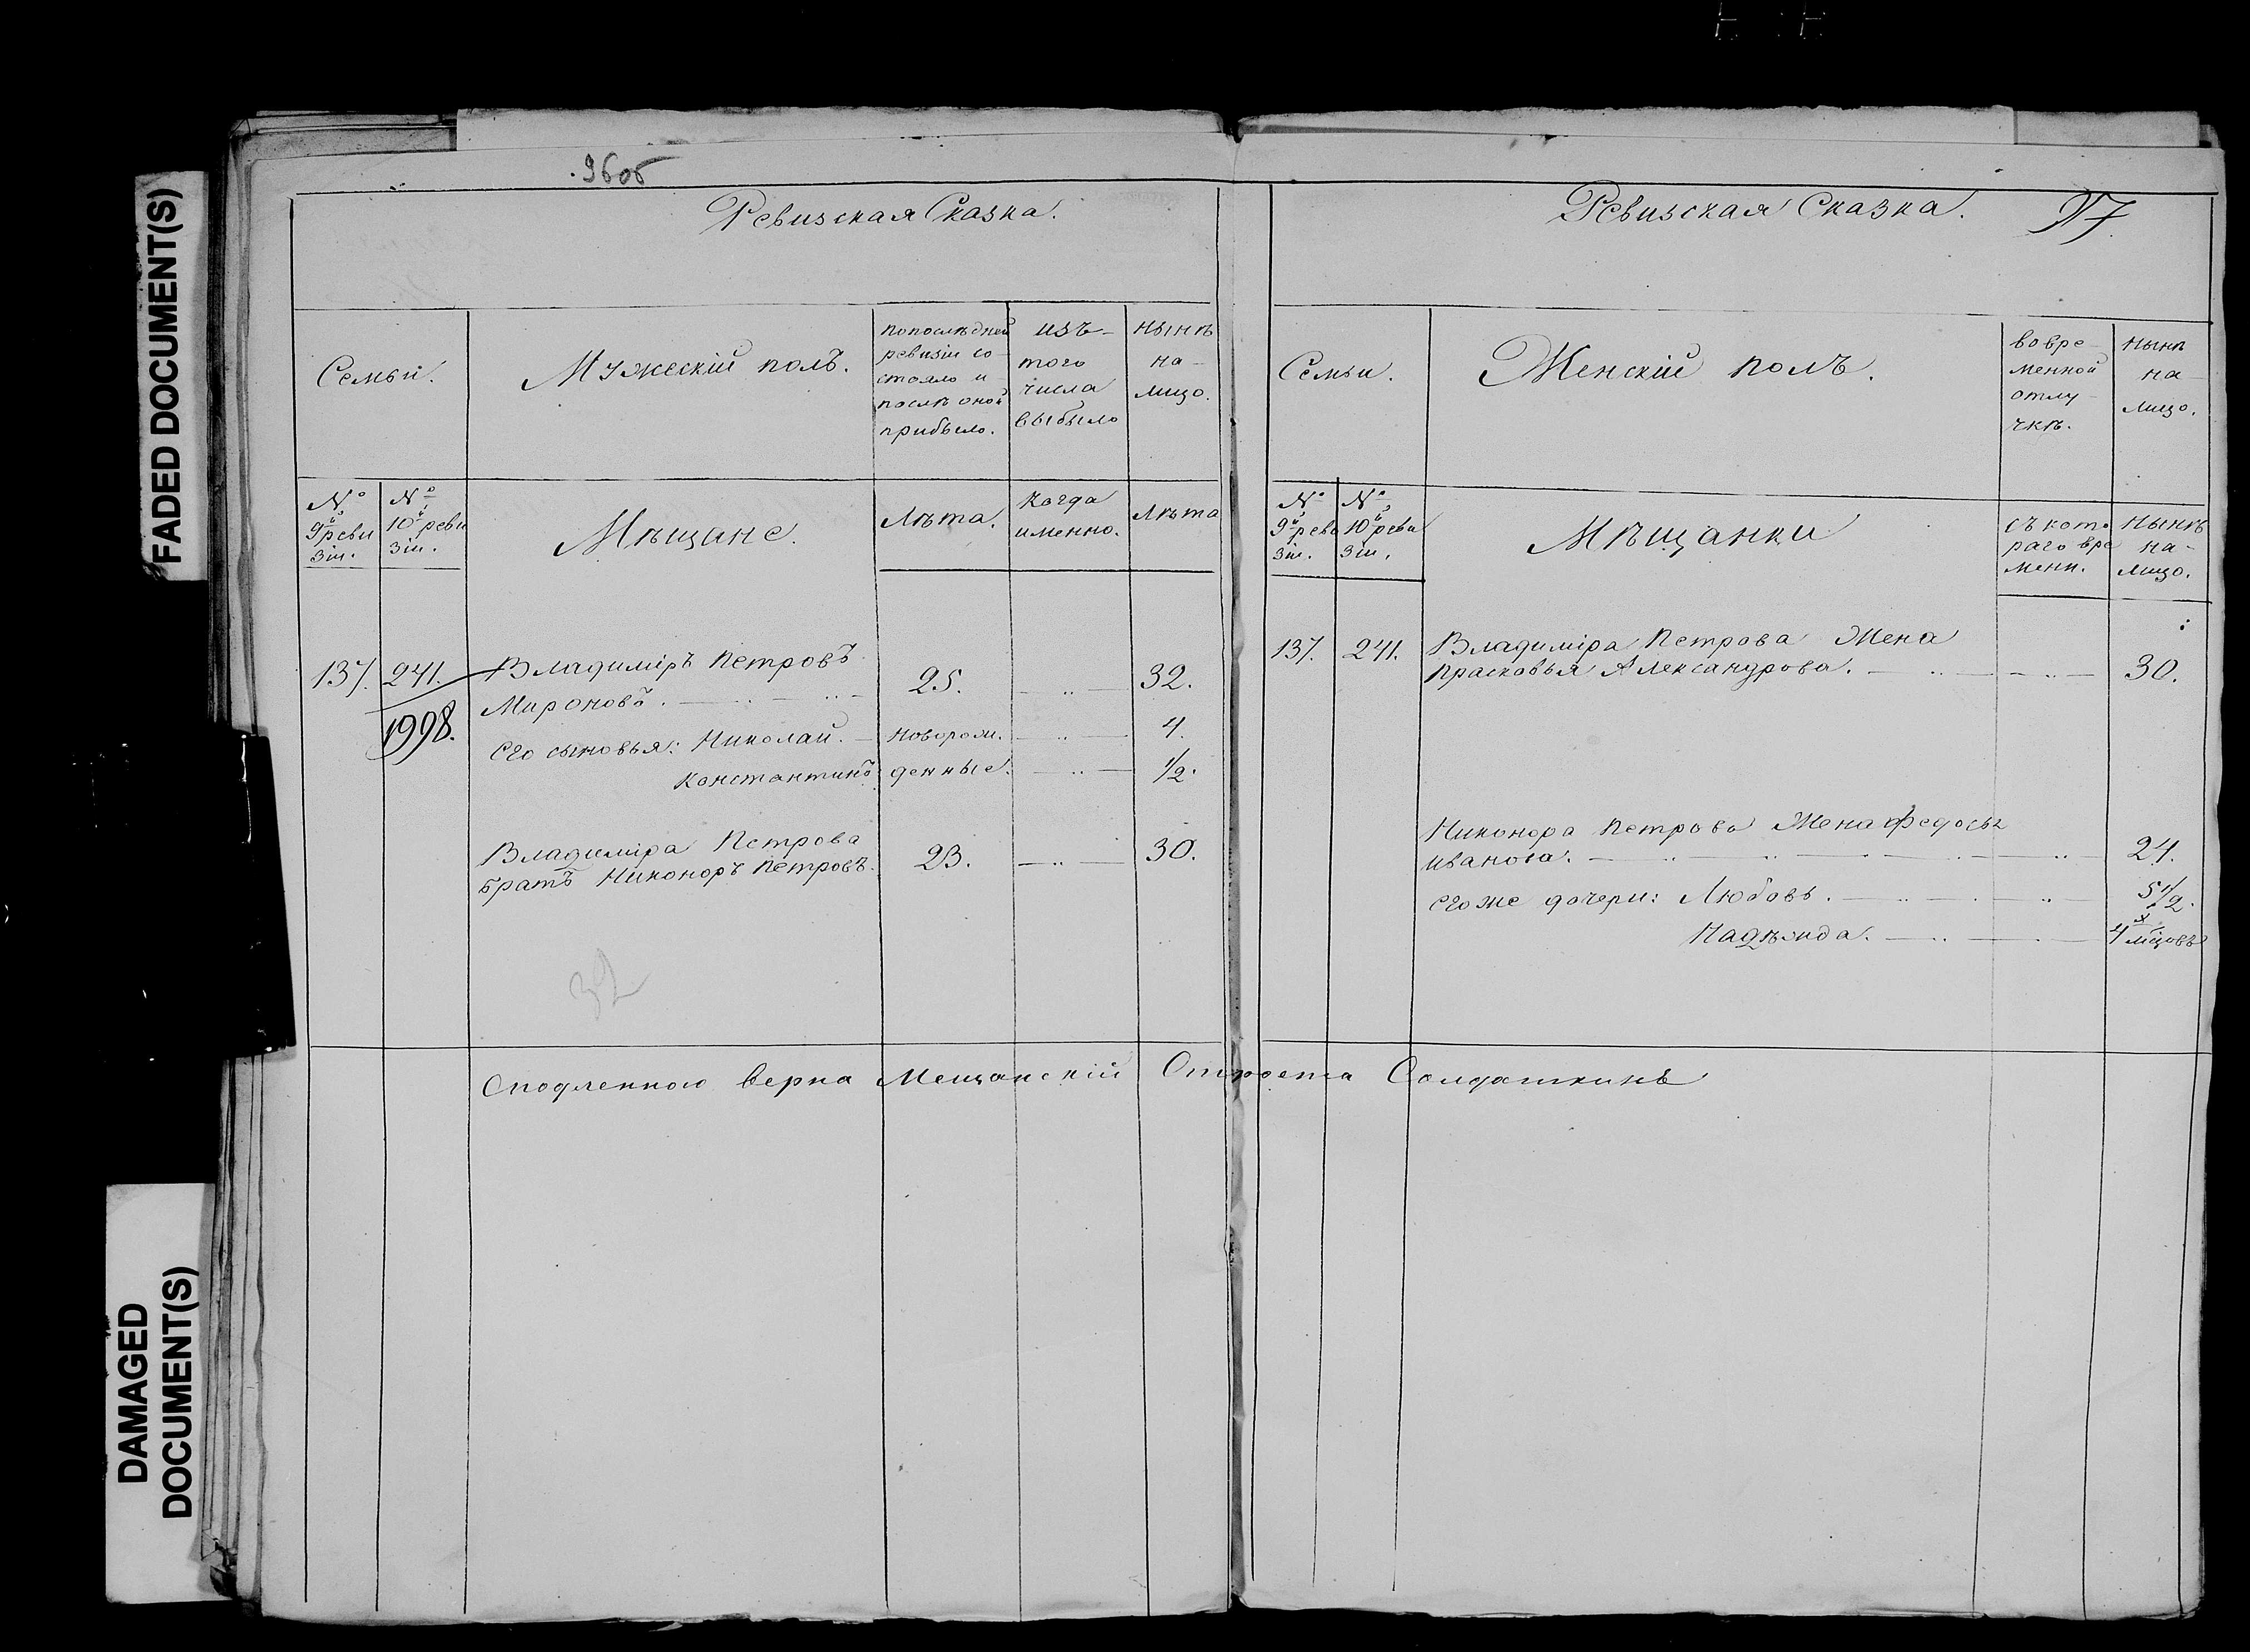 FADED DOCUMENT(S)
DAMAGED
DOCUMENT(S)
96об
Ревизская Сказка.
Семьи.
Мужескiй полъ.
попослѣдней
ревизiи со-
стояло и
послѣ оной
прибыло.
изъ-
того
числа
выбыло
нынѣ
на-
лицо.
№
9й реви
зiи.
№
10й реви
зiи.
Мѣщане.
Лѣта.
Когда
именно.
Лѣта
137. 241. Владимiръ Петровъ
Мироновъ. 25. 32.
1998.
Его сыновья: Николай. новорож. 4.
Константинъ денные. 1/2.
Владимiра Петрова
братъ Никоноръ Петровъ. 23. 30.
32
Ревизская Сказка. 97.
Семьи.
Женскiй полъ.
вовре-
менной
отлу-
чкѣ.
Нынѣ
на-
лицо.
№
9й реви
зiи.
№
10й реви
зiи.
Мѣщанки
съ кото
раго вре
мени.
Нынѣ
на-
лицо.
137. 241. Владимiра Петрова Жена
Прасковья Александрова. 30.
Никонора Петрова Жена Федосья
Иванова. 24.
Его же дочери: Любовь. 5 1/2.
Надѣжда. 4 х мѣцовъ
Сподленною верна Мещанскiй Староста Солдаткинъ